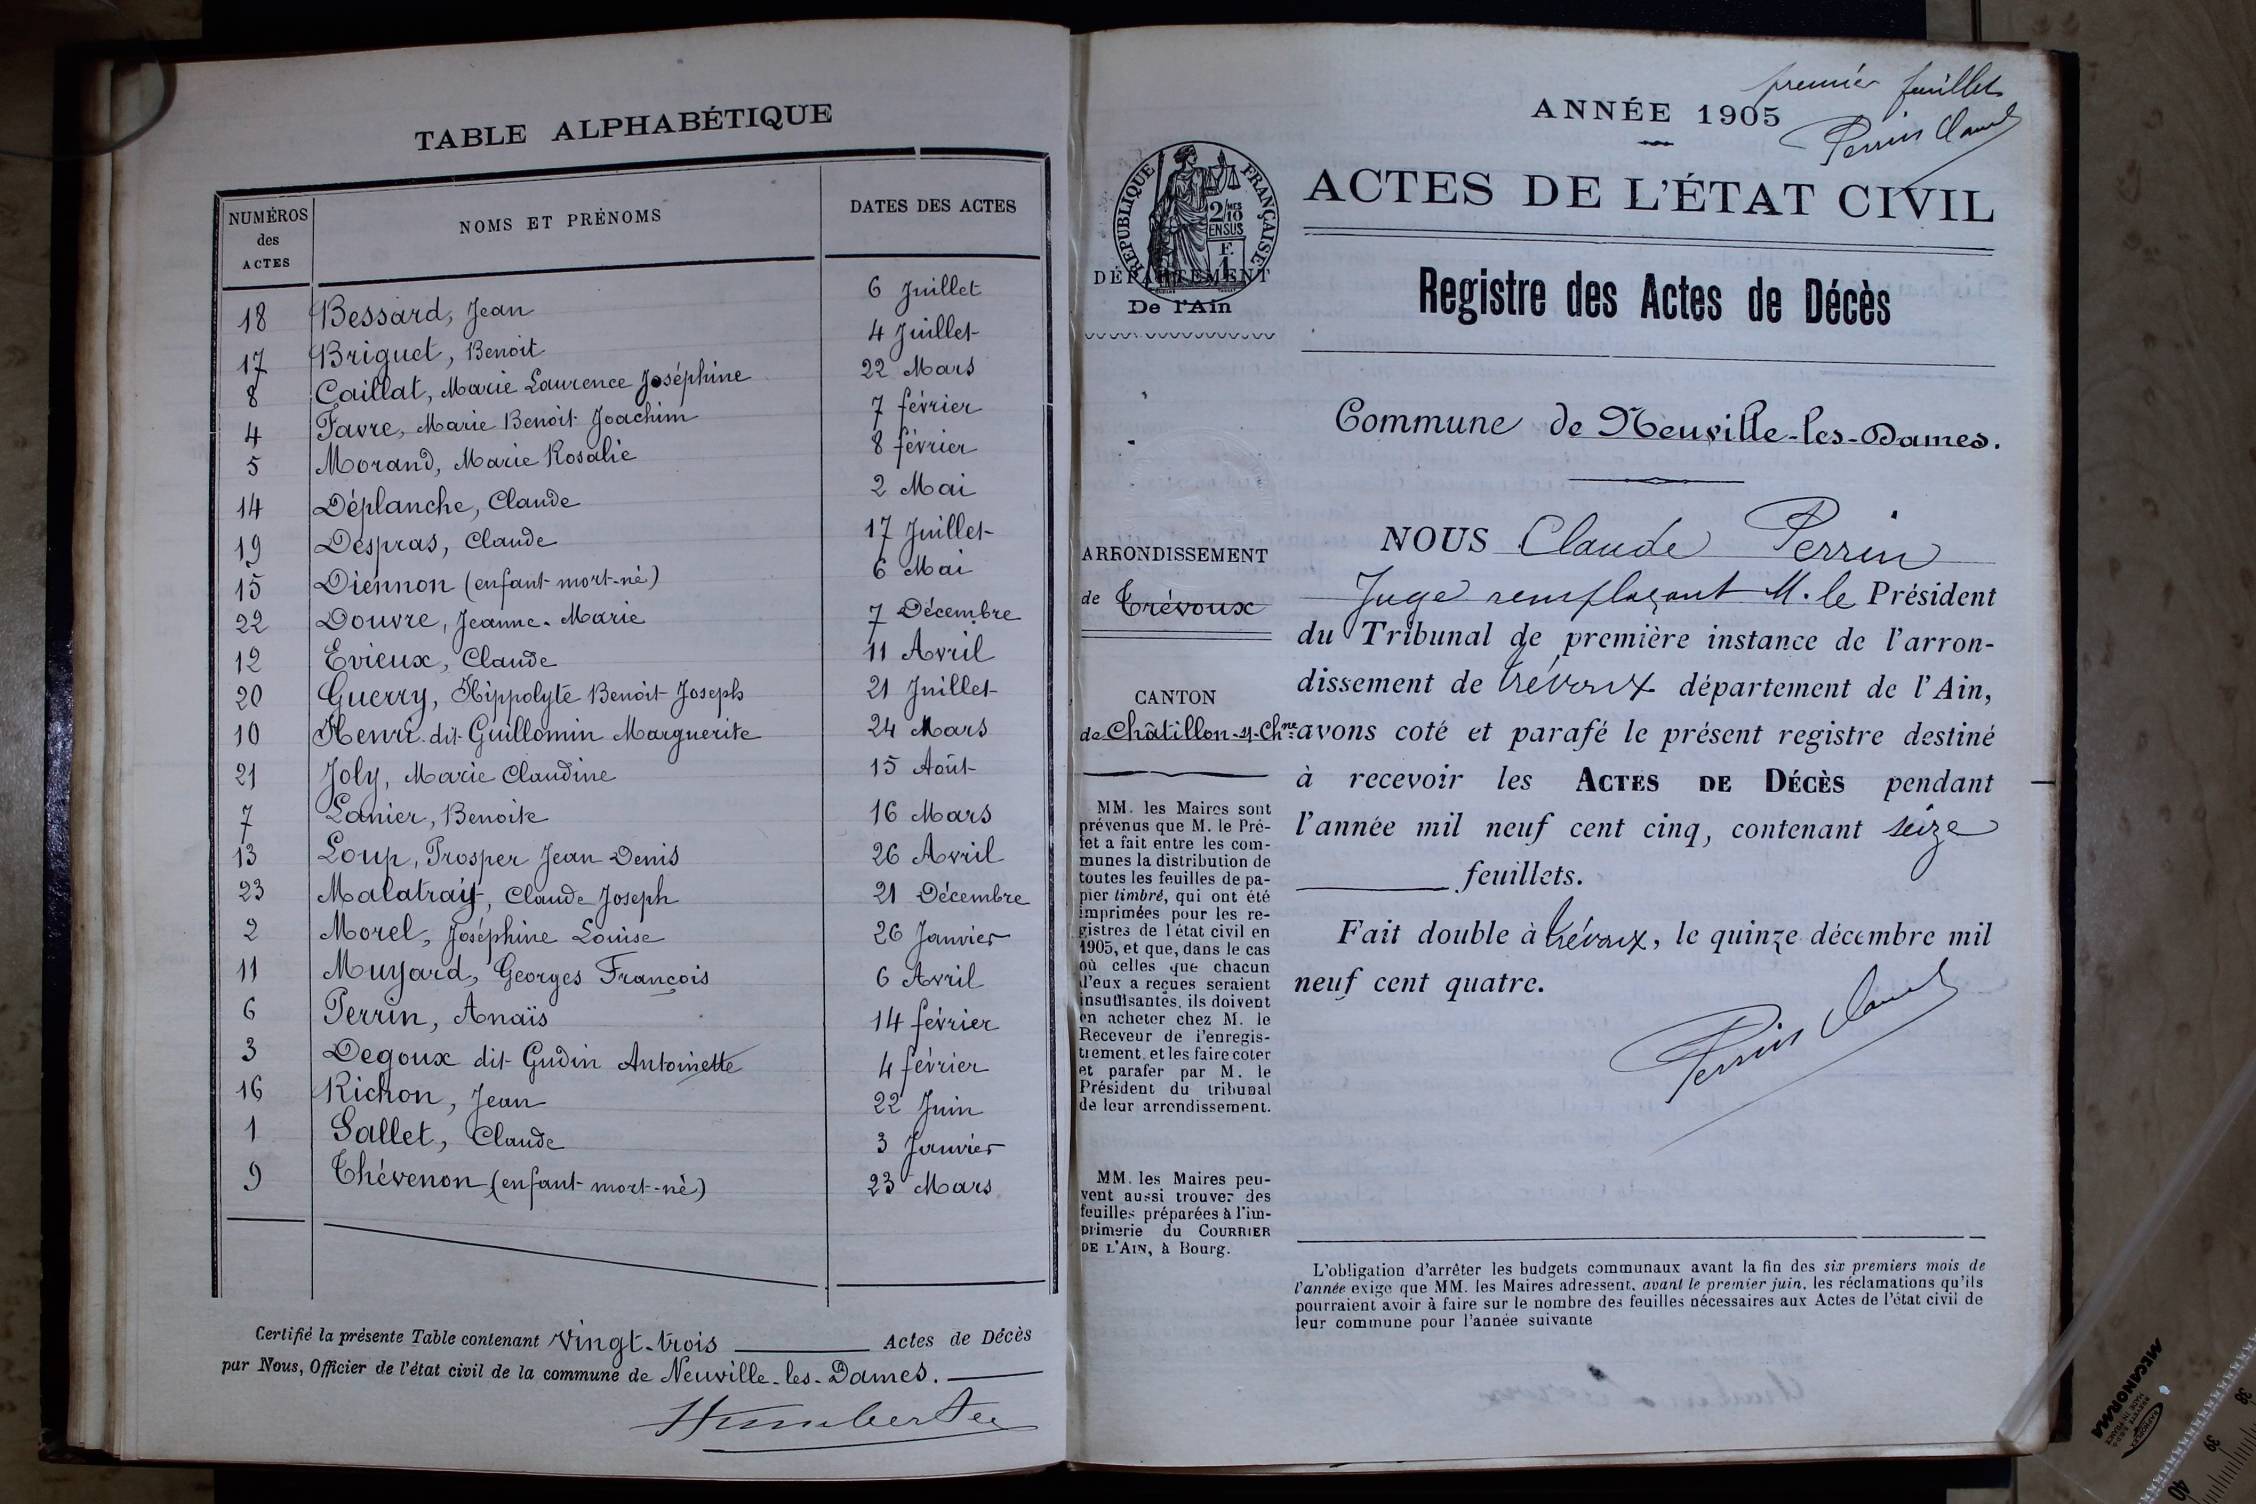 TABLE ALPHABÉTIQUE
NUMÉROS des ACTES NOMS ET PRÉNOMS DATES DES ACTES
18 Bessard, Jean 6 Juillet
17 Briguet, Benoit 4 Juillet
8 Caillat, Marie Laurence Joséphine 22 Mars
4 Favre, Marie Benoit Joachim 7 février
5 Morand, Marie Rosalie 8 février
14 Déplanche, Claude 2 Mai
19 Despras, Claude 17 Juillet
15 Diennon (enfant mort-né) 6 Mai
22 Douvre, Jeanne-Marie 7 Décembre
12 Evieux, Claude 11 Avril
20 Guerry, Hippolyte Benoit Joseph 21 Juillet
10 Henri dit Guillomin Marguerite 24 Mars
21 Joly, Marie Claudine 15 Août
7 Lanier, Benoite 16 Mars
13 Loup, Prosper Jean Denis 26 Avril
23 Malatray, Claude Joseph 21 Décembre
2 Morel, Joséphine Louise 26 Janvier
11 Muyard, Georges François 6 Avril
6 Perrin, Anaïs 14 février
3 Degoux dit Gudin Antoinette 4 février
16 Richon, Jean 22 Juin
1 Sallet, Claude 3 Janvier
9 Thévenon (enfant mort-né) 23 Mars
Certifié la présente Table contenant Vingt-trois Actes de Décès
par Nous, Officier de l'état civil de la commune de Neuville-les-Dames.
premier feuillet
Perrin Claude
ANNÉE 1905
ACTES DE L'ÉTAT CIVIL
RÉPUBLIQUE FRANÇAISE
2/10 MES
EN SUS
F.
1
DÉPARTEMENT
De l'Ain
Registre des Actes de Décès
Commune de Neuville-les-Dames.
ARRONDISSEMENT
de Trévoux
CANTON
de Châtillon-s-Chne
MM. les Maires sont
prévenus que M. le Pré-
fet a fait entre les com-
munes la distribution de
toutes les feuilles de pa-
pier timbré, qui ont été
imprimées pour les re-
gistres de l'état civil en
1905, et que, dans le cas
où celles que chacun
d'eux a reçues seraient
insuffisantes, ils doivent
en acheter chez M. le
Receveur de l'enregis-
trement, et les faire coter
et parafer par M. le
Président du tribunal
de leur arrondissement.
MM. les Maires peu-
vent aussi trouver des
feuilles préparées à l'im-
primerie du COURRIER
DE L'AIN, à Bourg.
NOUS Claude Perrin
Juge remplaçant M. le Président
du Tribunal de première instance de l'arron-
dissement de Trévoux département de l'Ain,
avons coté et parafé le présent registre destiné
à recevoir les ACTES DE DÉCÈS pendant
l'année mil neuf cent cinq, contenant seize
feuillets.
Fait double à Trévoux, le quinze décembre mil
neuf cent quatre.
Perrin Claude
L'obligation d'arrêter les budgets communaux avant la fin des six premiers mois de
l'année exige que MM. les Maires adressent, avant le premier juin, les réclamations qu'ils
pourraient avoir à faire sur le nombre des feuilles nécessaires aux Actes de l'état civil de
leur commune pour l'année suivante
MECANORMA
38
39
40